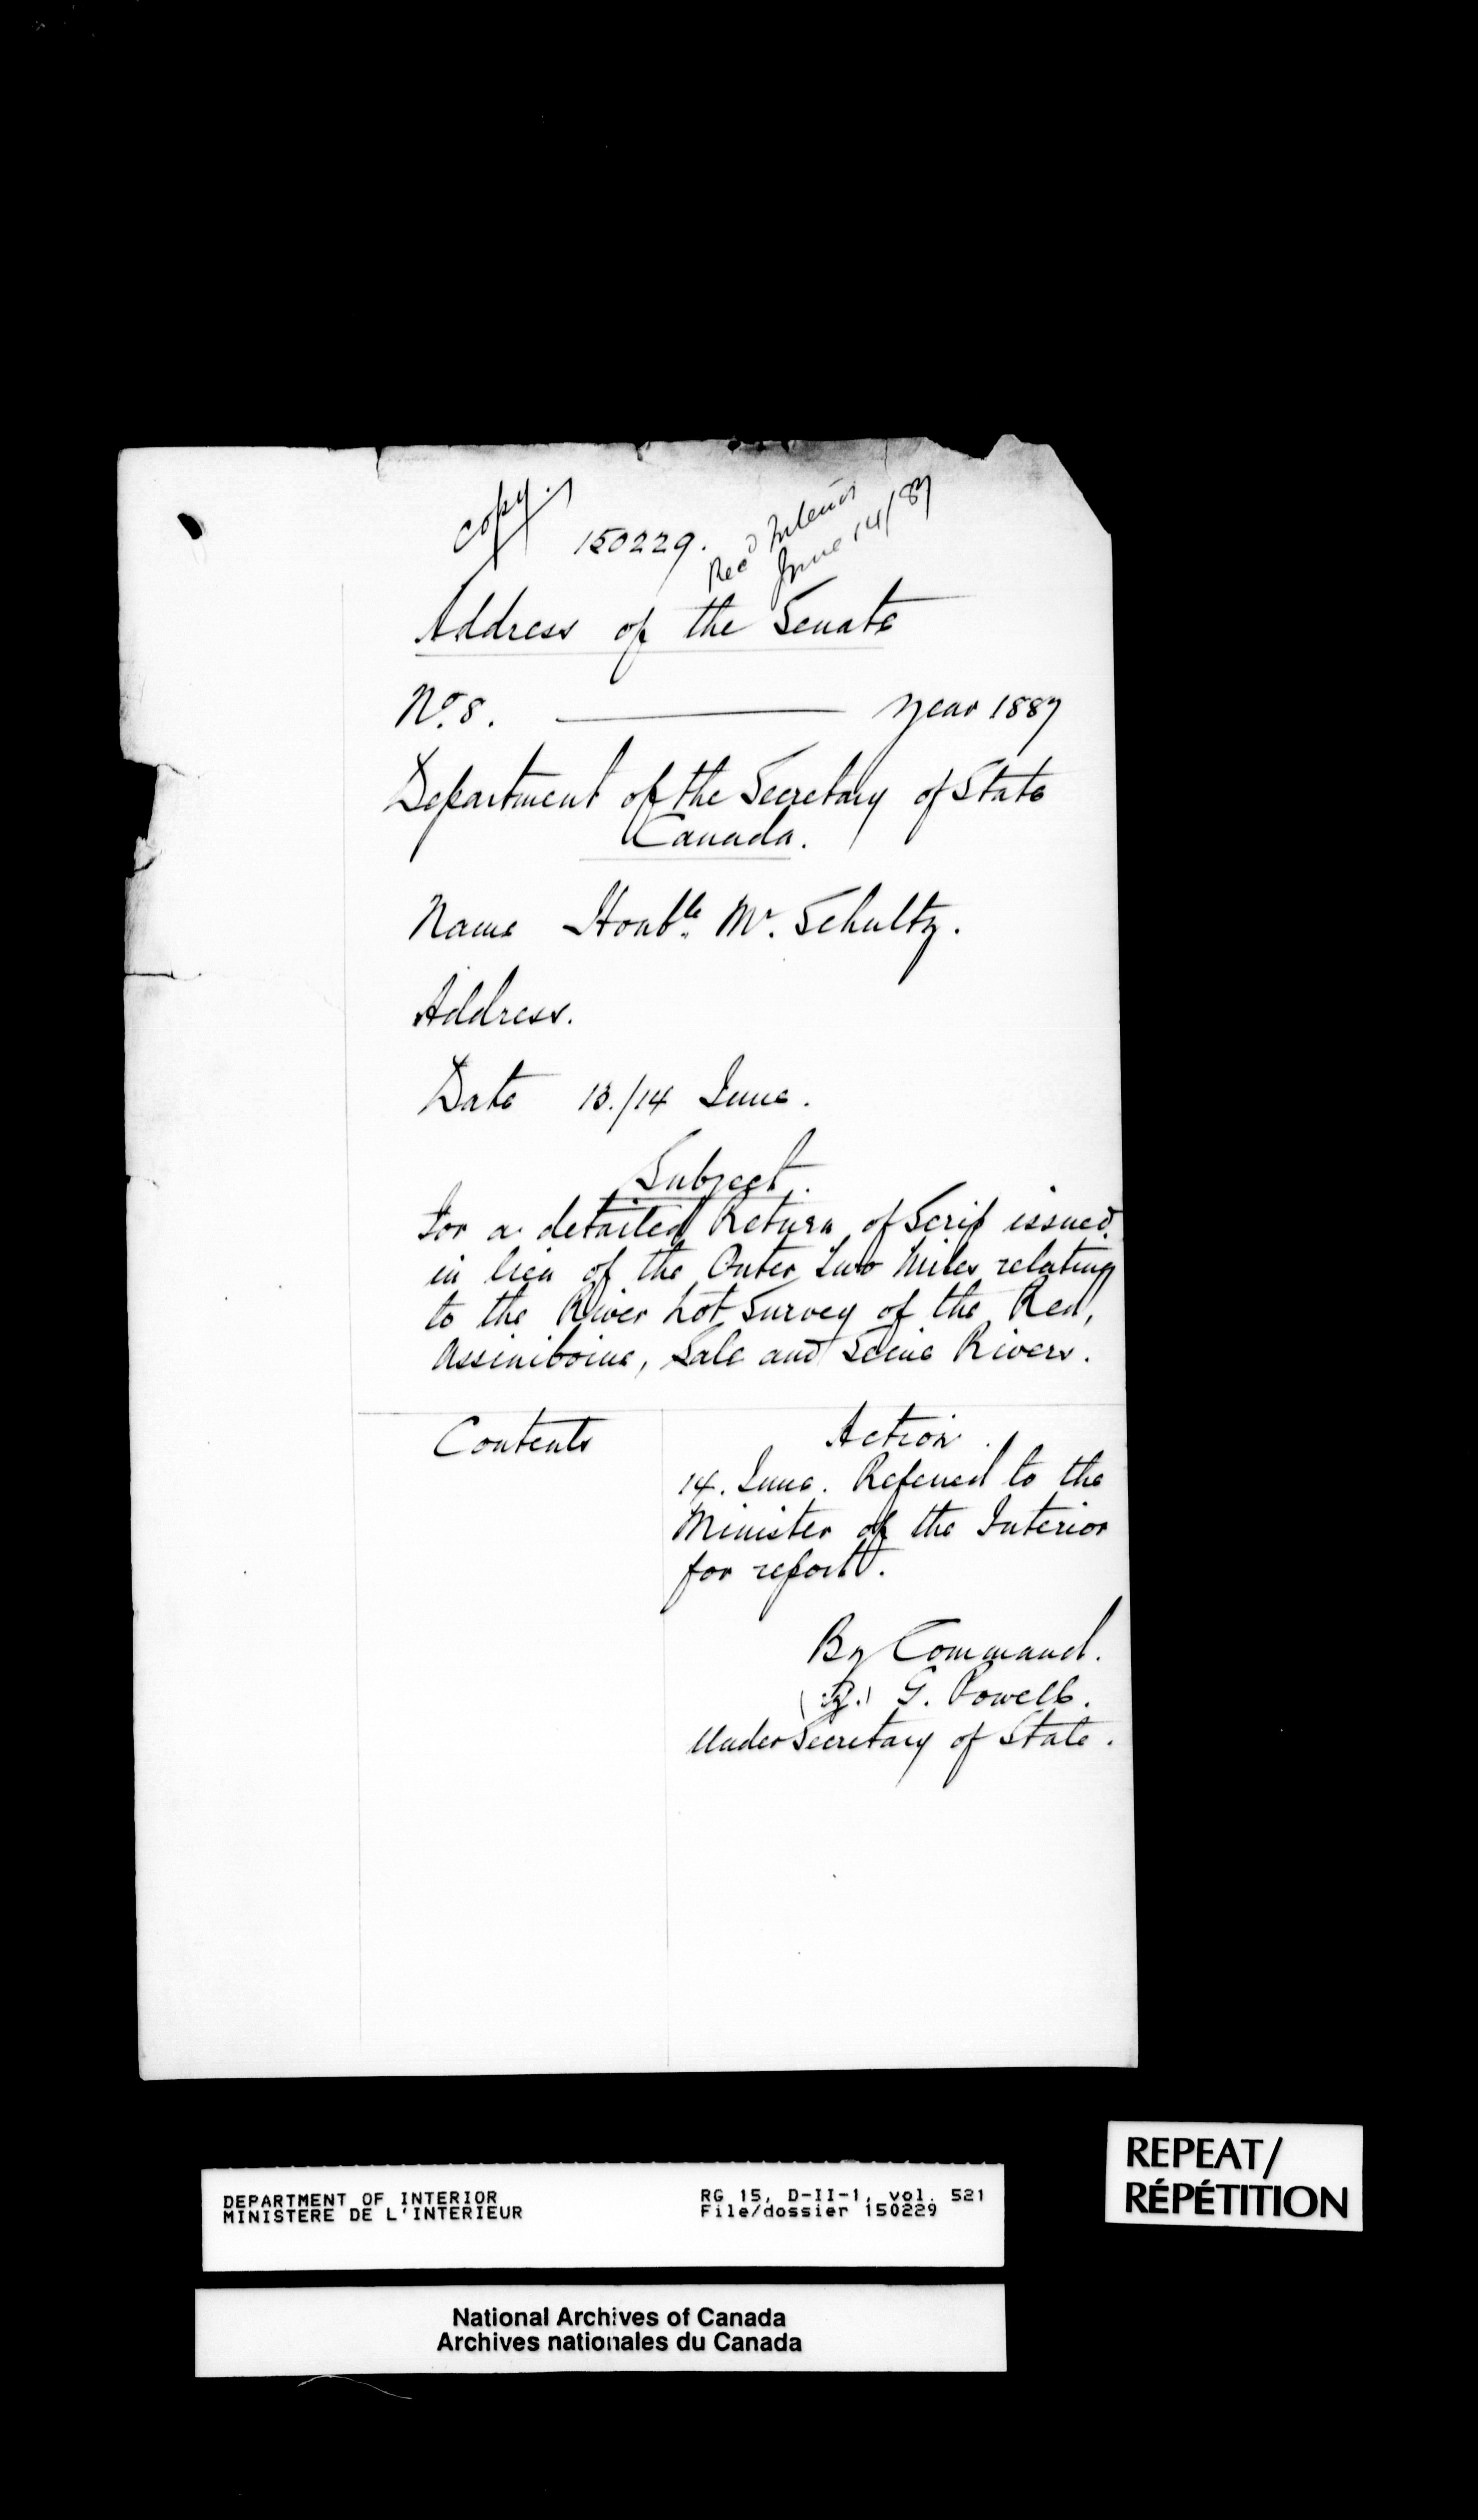 Copy.
150229.
Recd Interior
June 14/87
Address of the Senate
No. 8. ———— Year 1887
Department of the Secretary of State
Canada.
Name Honble. Mr. Schultz.
Address.
Date 13./14 June.
Subject.
For a detailed Return of Scrip issued
in lieu of the Outer Two Miles relating
to the River Lot Survey of the Red,
Assiniboine, Sale and Seine Rivers.
Contents
Action.
14. June. Referred to the
Minister of the Interior
for report.
By Command.
G. Powell.
Under Secretary of State.
REPEAT/
RÉPÉTITION
DEPARTMENT OF INTERIOR
MINISTERE DE L'INTERIEUR
RG 15, D-II-1, vol. 521
File/dossier 150229
National Archives of Canada
Archives nationales du Canada